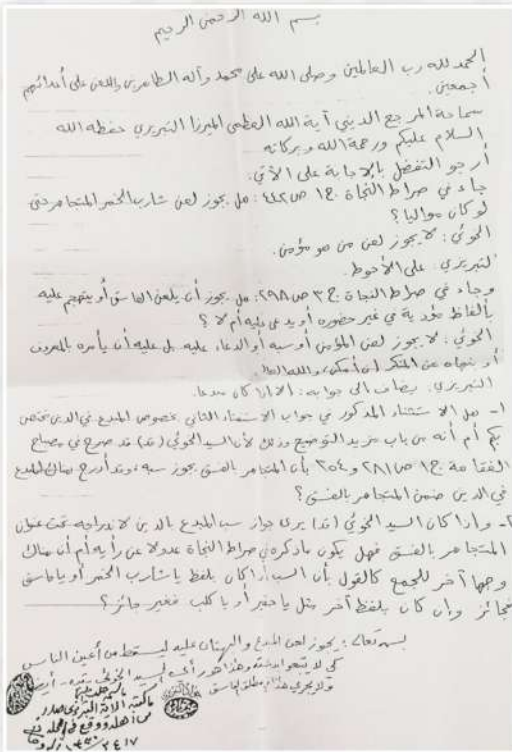 بسم الله الرحمن الرحيم
الحمد لله رب العالمين وصلى الله على محمد وآله الطاهرين واللعن على أعدائهم
أجمعين.
سماحة المرجع الديني آية الله العظمى الميرزا التبريزي حفظه الله
السلام عليكم ورحمة الله وبركاته
أرجو التفضل بالإجابة على الآتي:
جاء في صراط النجاة ج١ ص٤٤٢: هل يجوز لعن شارب الخمر المتجاهر حتى
لو كان مواليا؟
الخوئي: لا يجوز لعن من هو مؤمن.
التبريزي: على الأحوط.
وجاء في صراط النجاة ج٣ ص٢٩٨: هل يجوز أن يلعن الفاسق أو يتهجم عليه
بألفاظ مؤذية في غير حضوره أو يدعى عليه أم لا؟
الخوئي: لا يجوز لعن المؤمن أو سبه أو الدعاء عليه بل عليه أن يأمره بالمعروف
أو ينهاه عن المنكر إن أمكن، والله العالم.
التبريزي: يضاف إلى جوابه: إلا إذا كان مبدعا.
١- هل الاستثناء المذكور في جواب الاستفتاء الثاني بخصوص المبدع في الدين مختص
بكم أم أنه من باب مزيد التوضيح وذلك لأن السيد الخوئي (قد) قد صرح في مصباح
الفقاهة ج١ ص٢٨١ و٢٥٤ بأن المتجاهر بالفسق يجوز سبه، وقد أدرج هناك المبدع
في الدين ضمن المتجاهر بالفسق؟
٢- وإذا كان السيد الخوئي (قد) يرى جواز سب المبدع بالدين لاندراجه تحت عنوان
المتجاهر بالفسق فهل يكون ما ذكره في صراط النجاة عدولا عن رأيه أم أن هناك
وجها آخر للجمع كالقول بأن السب إذا كان بلفظ يا شارب الخمر أو يا فاسق
فجائز وإن كان بلفظ آخر مثل يا حقير أو يا كلب فغير جائز؟
بسمه تعالى: يجوز لعن المبدع والبهتان عليه ليسقط من أعين الناس
كي لا يتبعوا بدعته وهذا هو رأي السيد الخوئي قده
ولا يجري هذا في مطلق الفاسق